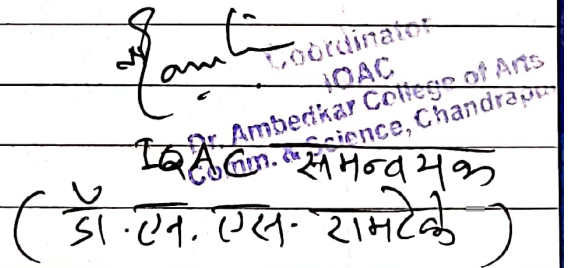 Coordinator
IQAC
Dr. Ambedkar College of Arts
Comm. & Science, Chandrapur
IQAC समन्वयक
(डॉ. एन. एस. रामटेके)